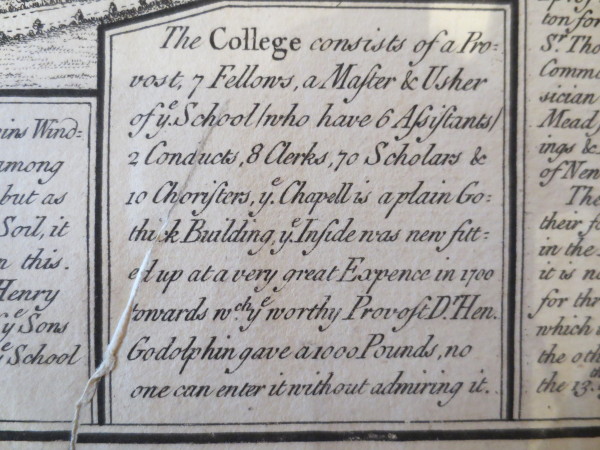 The College consists of a Pro=
vost, 7 Fellows, a Maſter & Usher
of yᵉ. School/who have 6 Aſsiſtants/
2 Conducts, 8 Clerks, 70 Scholars &
10 Choriſters, yᵉ. Chapell is a plain Go=
thick Building, yᵉ. Inſide was new fitt=
ed up at a very great Expence in 1700
towards wᶜʰ. yᵉ worthy Provoſt Dʳ. Hen.
Godolphin gave a 1000 Pounds, no
one can enter it without admiring it.
Wind=
among
but as
Soil, it
this.
Henry
yᵉ Sons
yᵉ School
ton for
Sᵗ. Tho
Commo
sician
Mead
ings &
of
The
their fo
in the
it is ne
for thr
which
the oth
the 13.